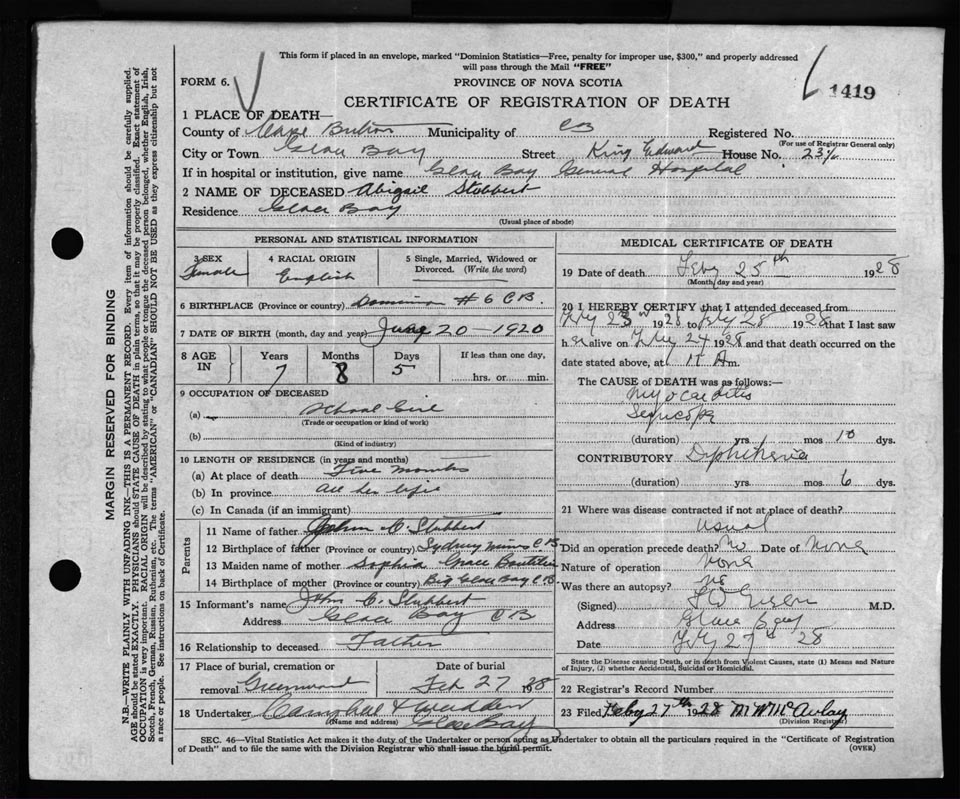 This form if placed in an envelope, marked "Dominion Statistics—Free, penalty for improper use, $300," and properly addressed
will pass through the Mail "FREE"
FORM 6.
PROVINCE OF NOVA SCOTIA
1419
CERTIFICATE OF REGISTRATION OF DEATH
1 PLACE OF DEATH—
County of Cape Breton Municipality of CB Registered No.
(For use of Registrar General only)
City or Town Glace Bay Street King Edward House No. 23½
If in hospital or institution, give name Glace Bay General Hospital
2 NAME OF DECEASED Abigail Stubbert
Residence Glace Bay
(Usual place of abode)
PERSONAL AND STATISTICAL INFORMATION
3 SEX Female
4 RACIAL ORIGIN English
5 Single, Married, Widowed or Divorced. (Write the word)
6 BIRTHPLACE (Province or country) Dominion #6 CB.
7 DATE OF BIRTH (month, day and year) June 20 - 1920
8 AGE IN Years 7 Months 8 Days 5 If less than one day, hrs. or min.
9 OCCUPATION OF DECEASED
(a) School Girl
(Trade or occupation or kind of work)
(b)
(Kind of industry)
10 LENGTH OF RESIDENCE (in years and months)
(a) At place of death Five months
(b) In province all her life
(c) In Canada (if an immigrant)
Parents
11 Name of father John C. Stubbert
12 Birthplace of father (Province or country) Sydney mines CB
13 Maiden name of mother Sophia Grace Boutilier
14 Birthplace of mother (Province or country) Big Glace Bay CB
15 Informant's name John C. Stubbert
Address Glace Bay CB
16 Relationship to deceased Father
17 Place of burial, cremation or removal Greenwood
Date of burial Feb 27 1928
18 Undertaker Campbell &
(Name and address) Glace Bay
MEDICAL CERTIFICATE OF DEATH
19 Date of death Feby 25th 1928
(Month, day and year)
20 I HEREBY CERTIFY that I attended deceased from
Feby 23 1928 to Feby 1928 that I last saw
her alive on Feby 24 1928 and that death occurred on the
date stated above, at A m.
The CAUSE of DEATH was as follows:—
Myocarditis
Syncope
(duration) yrs. mos 10 dys.
CONTRIBUTORY Diphtheria
(duration) yrs. mos 6 dys.
21 Where was disease contracted if not at place of death?
usual
Did an operation precede death? No Date of None
Nature of operation None
Was there an autopsy? No
(Signed) M.D.
Address Glace Bay
Date Feby 27th 28
State the Disease causing Death, or in death from Violent Causes, state (1) Means and Nature
of Injury, (2) whether Accidental, Suicidal or Homicidal.
22 Registrar's Record Number
23 Filed Feby 27th 1928 M McAulay
(Division Registrar)
SEC. 46—Vital Statistics Act makes it the duty of the Undertaker or person acting as Undertaker to obtain all the particulars required in the "Certificate of Registration
of Death" and to file the same with the Division Registrar who shall issue the burial permit. (OVER)
MARGIN RESERVED FOR BINDING
N.B.—WRITE PLAINLY WITH UNFADING INK—THIS IS A PERMANENT RECORD. Every item of information should be carefully supplied.
AGE should be stated EXACTLY. PHYSICIANS should STATE CAUSE OF DEATH in plain terms, so that it may be properly classified. Exact statement of
OCCUPATION is very important. RACIAL ORIGIN will be described by stating to what people or tongue the deceased person belonged, whether English, Irish,
Scotch, French, German, Russian, Ruthenian, etc. The terms "AMERICAN" or "CANADIAN" SHOULD NOT BE USED as they express citizenship but not
a race or people. See instructions on back of Certificate.